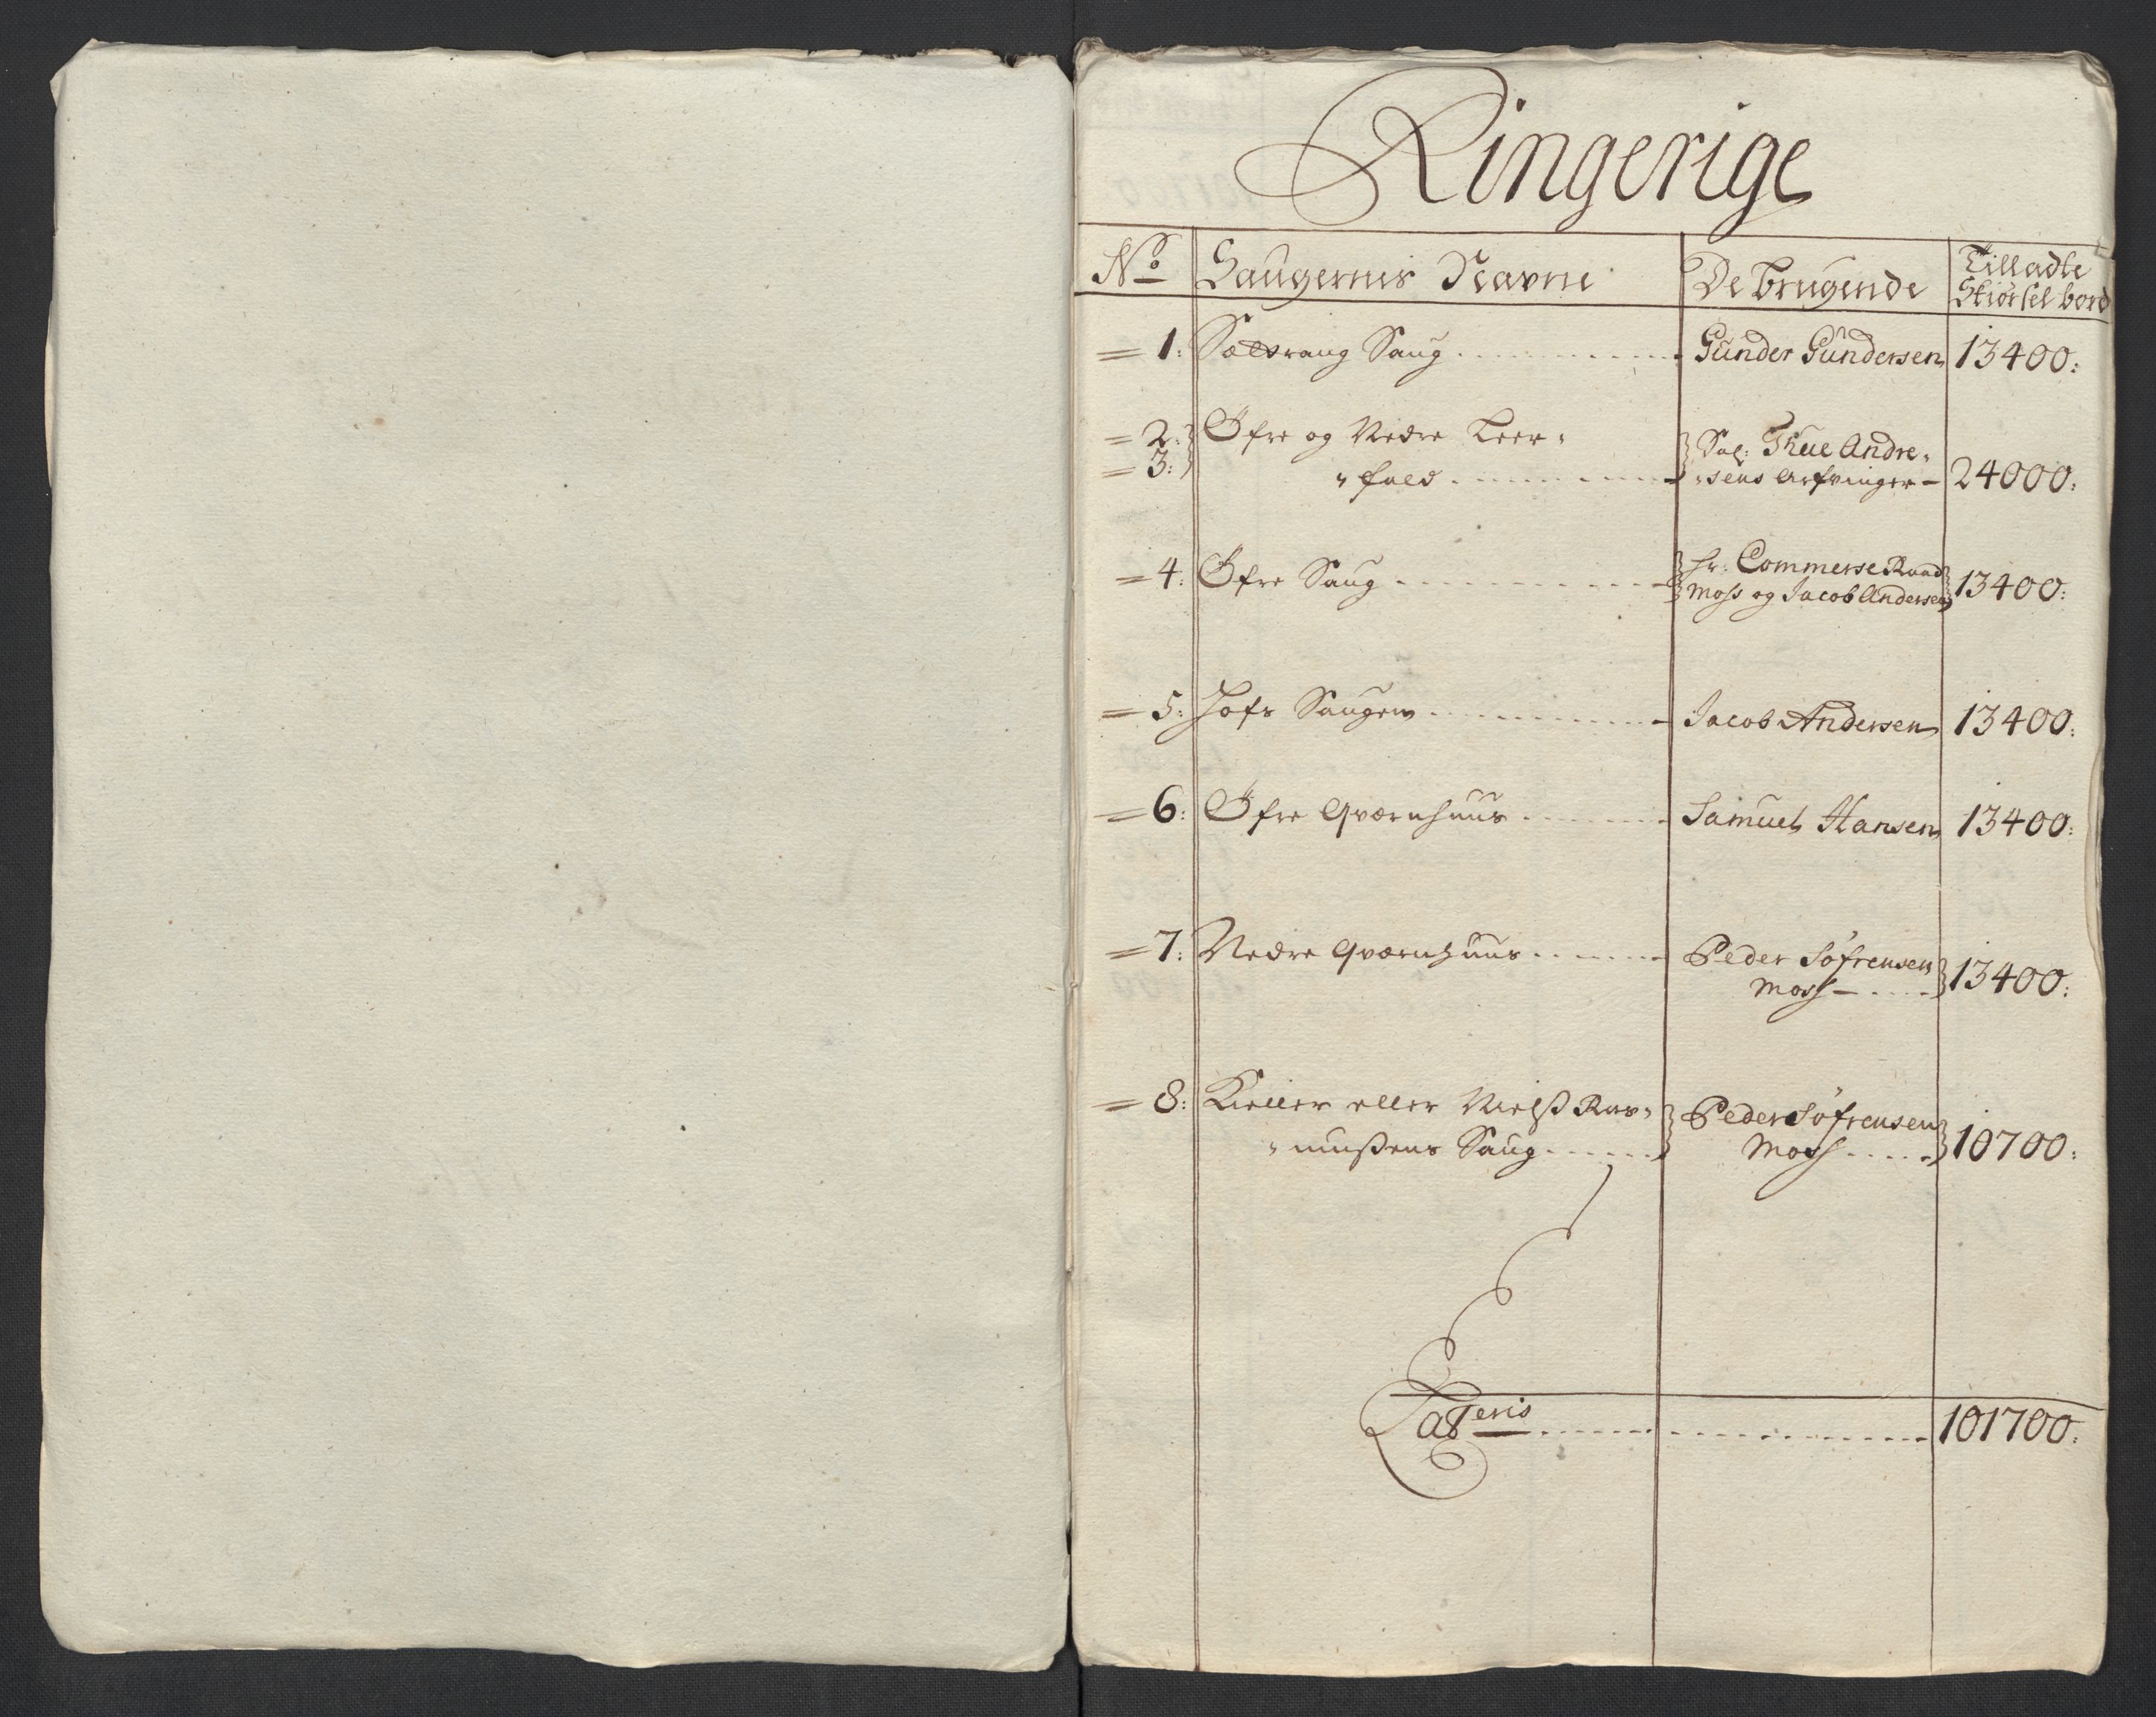 Ringerige
No Saugernis Navne De brugende Tilladte
Skiørsel bord
1: Sælsrang Saug Gunder Gundersen 13400:
2: Øfre og Nedre Leer-
3: fald Sal: Thue Andre-
sens Arfvinger 24000:
4: Øfre Saug Hr: Commerse Raad
Moss og Jacob Andersen 13400:
5: Hofs Saugen Jacob Andersen 13400:
6: Øfre Qværnhuus Samuel Hansen 13400:
7: Nedre Qværnhuus Peder Söfrensen
Moss 13400:
8: Kieller eller Nielß Ras- Peder Söfrensen
mußens Saug Moss 10700:
Lateris 101700: